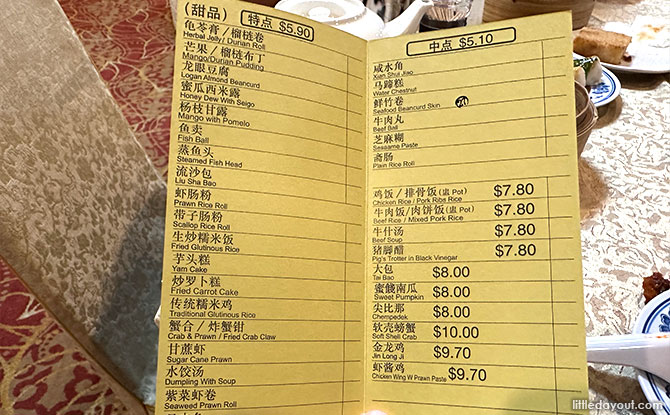 (甜品) 特点 $5.90
龟苓膏 / 榴梿卷
Herbal Jelly / Durian Roll
芒果 / 榴梿布丁
Mango/Durian Pudding
龙眼豆腐
Logan Almond Beancurd
蜜瓜西米露
Honey Dew With Seigo
杨枝甘露
Mango with Pomelo
鱼卖
Fish Ball
蒸鱼头
Steamed Fish Head
流沙包
Liu Sha Bao
虾肠粉
Prawn Rice Roll
带子肠粉
Scallop Rice Roll
生炒糯米饭
Fried Glutinous Rice
芋头糕
Yam Cake
炒罗卜糕
Fried Carrot Cake
传统糯米鸡
Traditional Glutinous Rice
蟹合 / 炸蟹钳
Crab & Prawn / Fried Crab Claw
甘蔗虾
Sugar Cane Prawn
水饺汤
Dumpling With Soup
紫菜虾卷
Seaweed Prawn Roll
中点 $5.10
咸水角
Xian Shui Jiao
马蹄糕
Water Chestnut
鲜竹卷
Seafood Beancurd Skin
牛肉丸
Beef Ball
芝麻糊
Sesaame Paste
斋肠
Plain Rice Roll
鸡饭 / 排骨饭 (盅 Pot) $7.80
Chicken Rice / Pork Ribs Rice
牛肉饭/肉饼饭 (盅 Pot) $7.80
Beef Rice / Mixed Pork Rice
牛什汤 $7.80
Beef Soup
猪脚醋 $7.80
Pig's Trotter in Black Vinegar
大包 $8.00
Tai Bao
蜜饯南瓜 $8.00
Sweet Pumpkin
尖比那 $8.00
Chempedek
软壳螃蟹 $10.00
Soft Shell Crab
金龙鸡 $9.70
Jin Long Ji
虾酱鸡 $9.70
Chicken Wing W Prawn Paste
littledayout.com